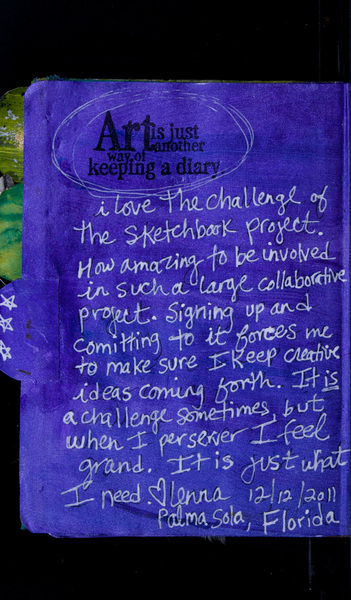 Art is just
another
way of
keeping a diary.
i love the challenge of
the Sketchbook project.
How amazing to be involved
in such a large collaborative
project. Signing up and
comitting to it forces me
to make sure I keep creative
ideas coming forth. It is
a challenge sometimes, but
when I perserver I feel
grand. It is just what
I need ♡ lenna 12/12/2011
Palma Sola, Florida